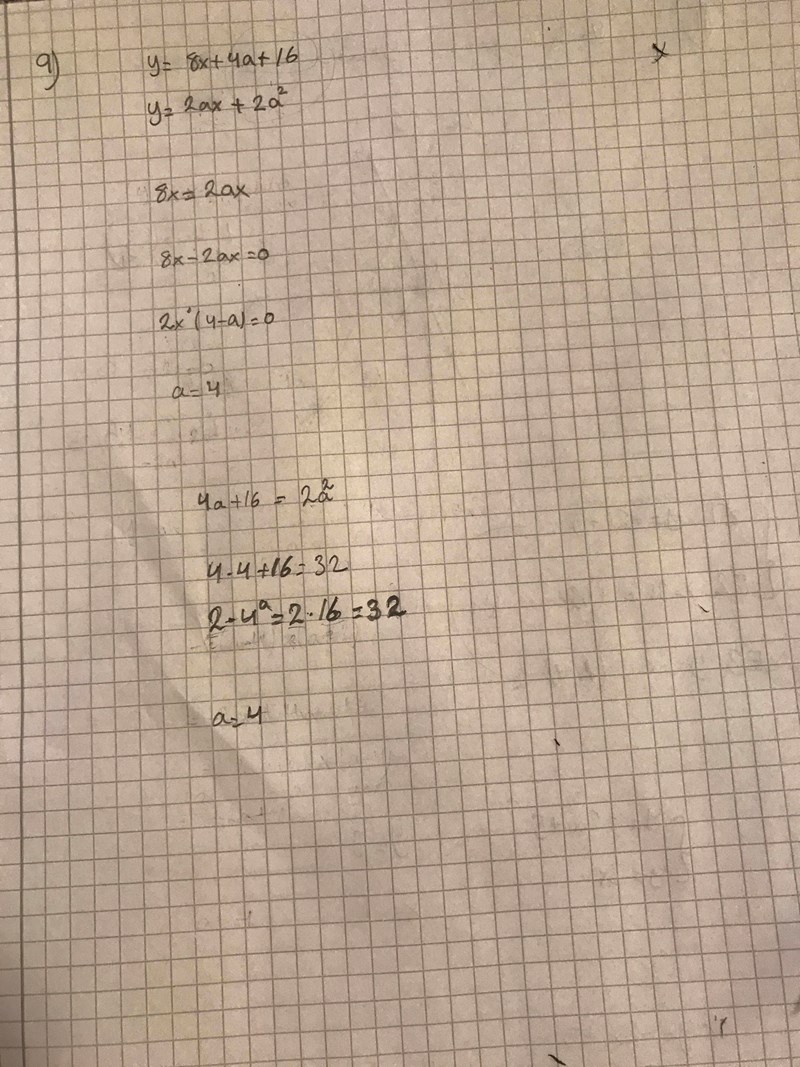 9)
y = 8x+4a+16
y = 2ax + 2a²
8x = 2ax
8x - 2ax = 0
2x·(4-a)=0
a=4
4a+16 = 2a²
4·4+16=32
2·4²=2·16=32
a=4